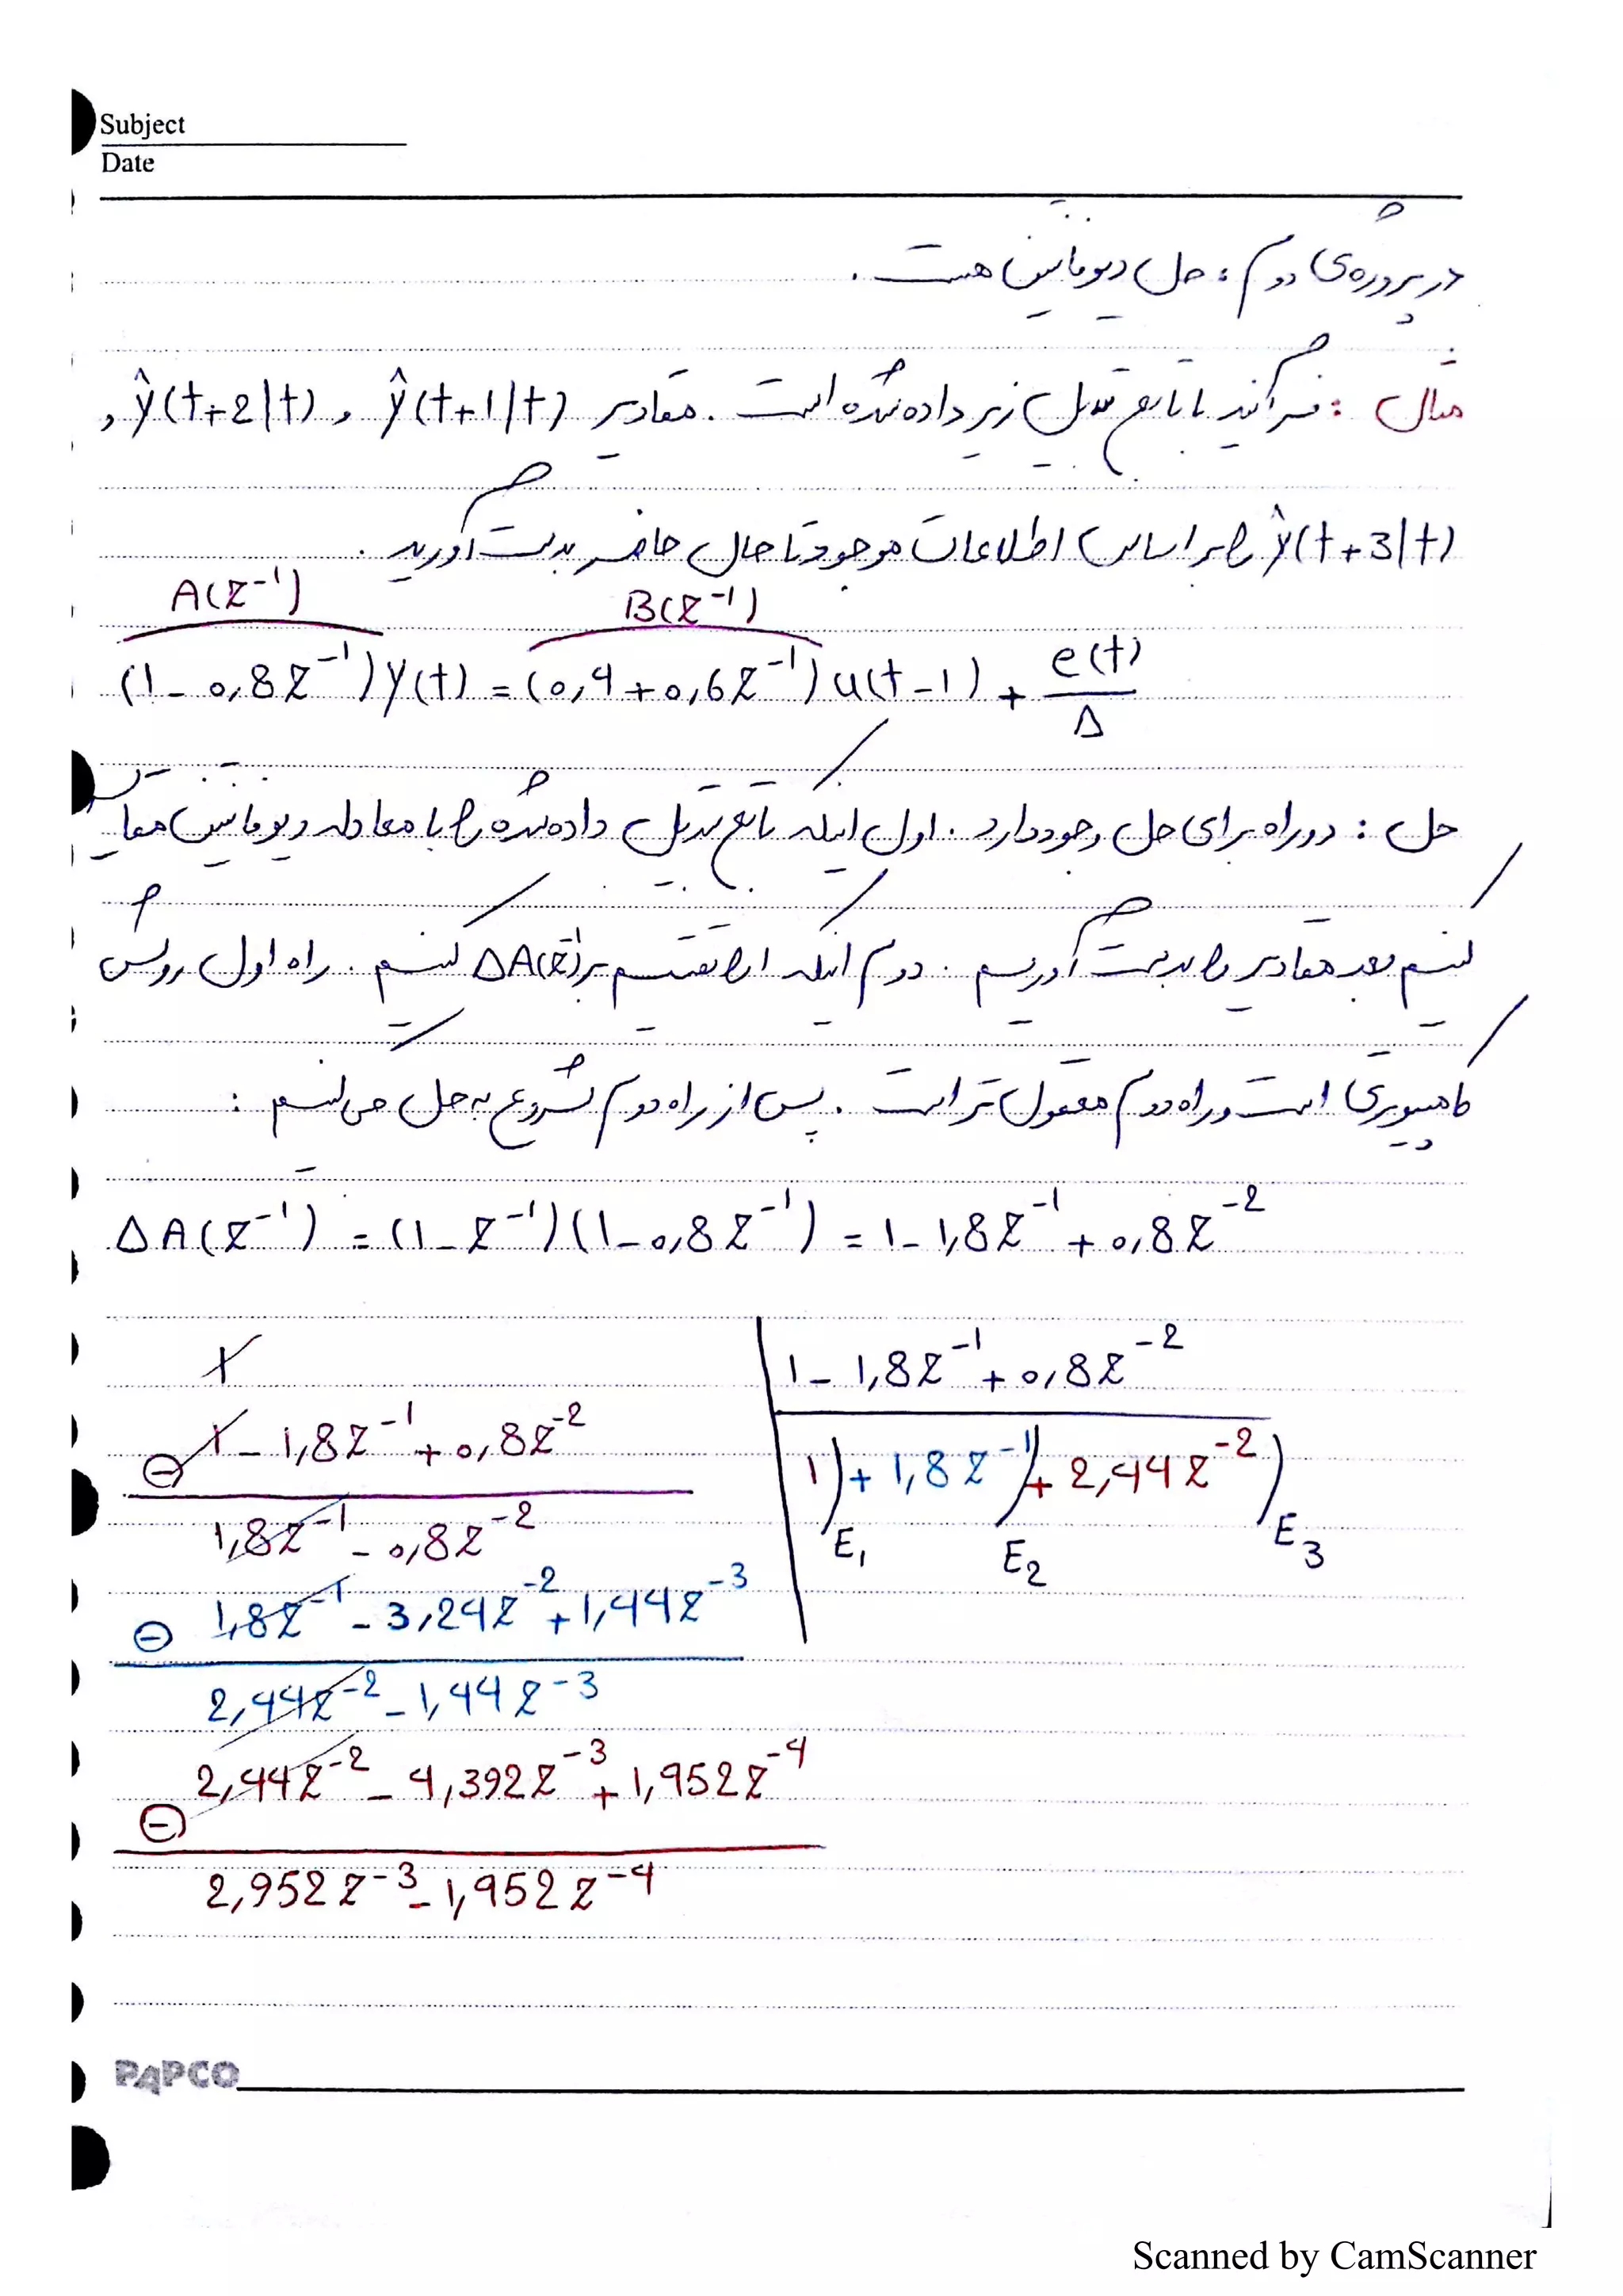 Subject
Date
در پروژه‌ی دوم، حل دیوفانتین هست.
مثال: فرآیند با تابع تبدیل زیر داده شده است. مقادیر ŷ(t+1|t) و ŷ(t+2|t) و
ŷ(t+3|t) را بر اساس اطلاعات موجود تا حال حاضر بدست آورید.
A(z⁻¹) B(z⁻¹)
(1-0,8z⁻¹)y(t) = (0,4+0,6z⁻¹)u(t-1) + e(t)/Δ
حل: دو راه برای حل وجود دارد. اول اینکه تابع تبدیل داده شده را با معادله دیوفانتین
کنیم بعد مقادیر را بدست آوریم. دوم اینکه 1 را تقسیم بر ΔA(z⁻¹) کنیم. راه اول روش
کامپیوتری است و راه دوم معقول تر است. پس از راه دوم شروع به حل می کنیم:
ΔA(z⁻¹) = (1-z⁻¹)(1-0,8z⁻¹) = 1-1,8z⁻¹+0,8z⁻²
1 | 1-1,8z⁻¹+0,8z⁻²
⊖ 1-1,8z⁻¹+0,8z⁻² | 1)+1,8z⁻¹)+2,44z⁻²)
1,8z⁻¹-0,8z⁻² E₁ E₂ E₃
⊖ 1,8z⁻¹-3,24z⁻²+1,44z⁻³
2,44z⁻²-1,44z⁻³
⊖ 2,44z⁻²-4,392z⁻³+1,952z⁻⁴
2,952z⁻³-1,952z⁻⁴
PAPCO
Scanned by CamScanner